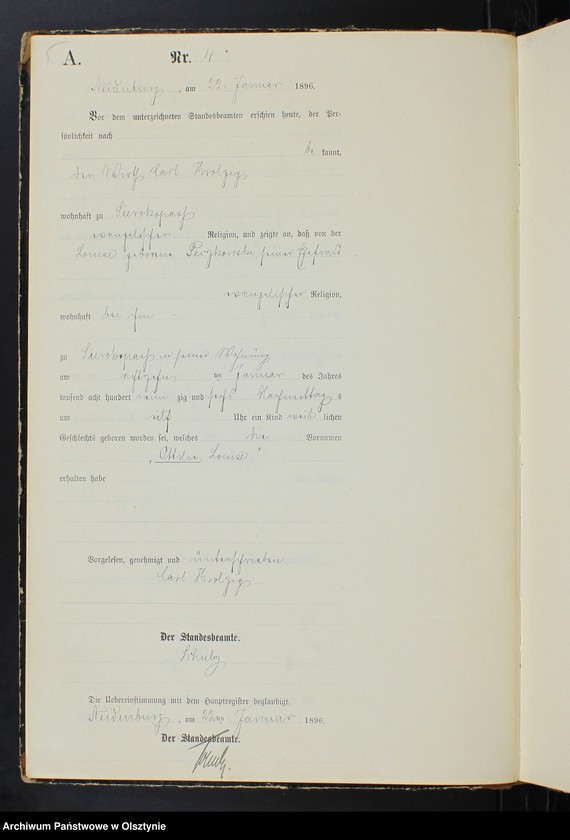 A.
Nr. 4
Neidenburg, am 22. Januar 1896.
Vor dem unterzeichneten Standesbeamten erschien heute, der Per-
sönlichkeit nach
be kannt,
den Wirth Carl
wohnhaft zu
evangelischer Religion, und zeigte an, daß von der
Louise geborene seiner Ehefrau
evangelischer Religion,
wohnhaft bei ihm
zu in seiner Wohnung
am achtzehn ten Januar des Jahres
tausend acht hundert neun zig und sechs Nachmittag s
um elf Uhr ein Kind weib lichen
Geschlechts geboren worden sei, welches die Vornamen
„Ottilie Louise“
erhalten habe
Vorgelesen, genehmigt und unterschrieben
Carl
Der Standesbeamte.
Schulz
Die Uebereinstimmung mit dem Hauptregister beglaubigt.
Neidenburg, am 22ten Januar 1896.
Der Standesbeamte.
Schulz.
Archiwum Państwowe w Olsztynie